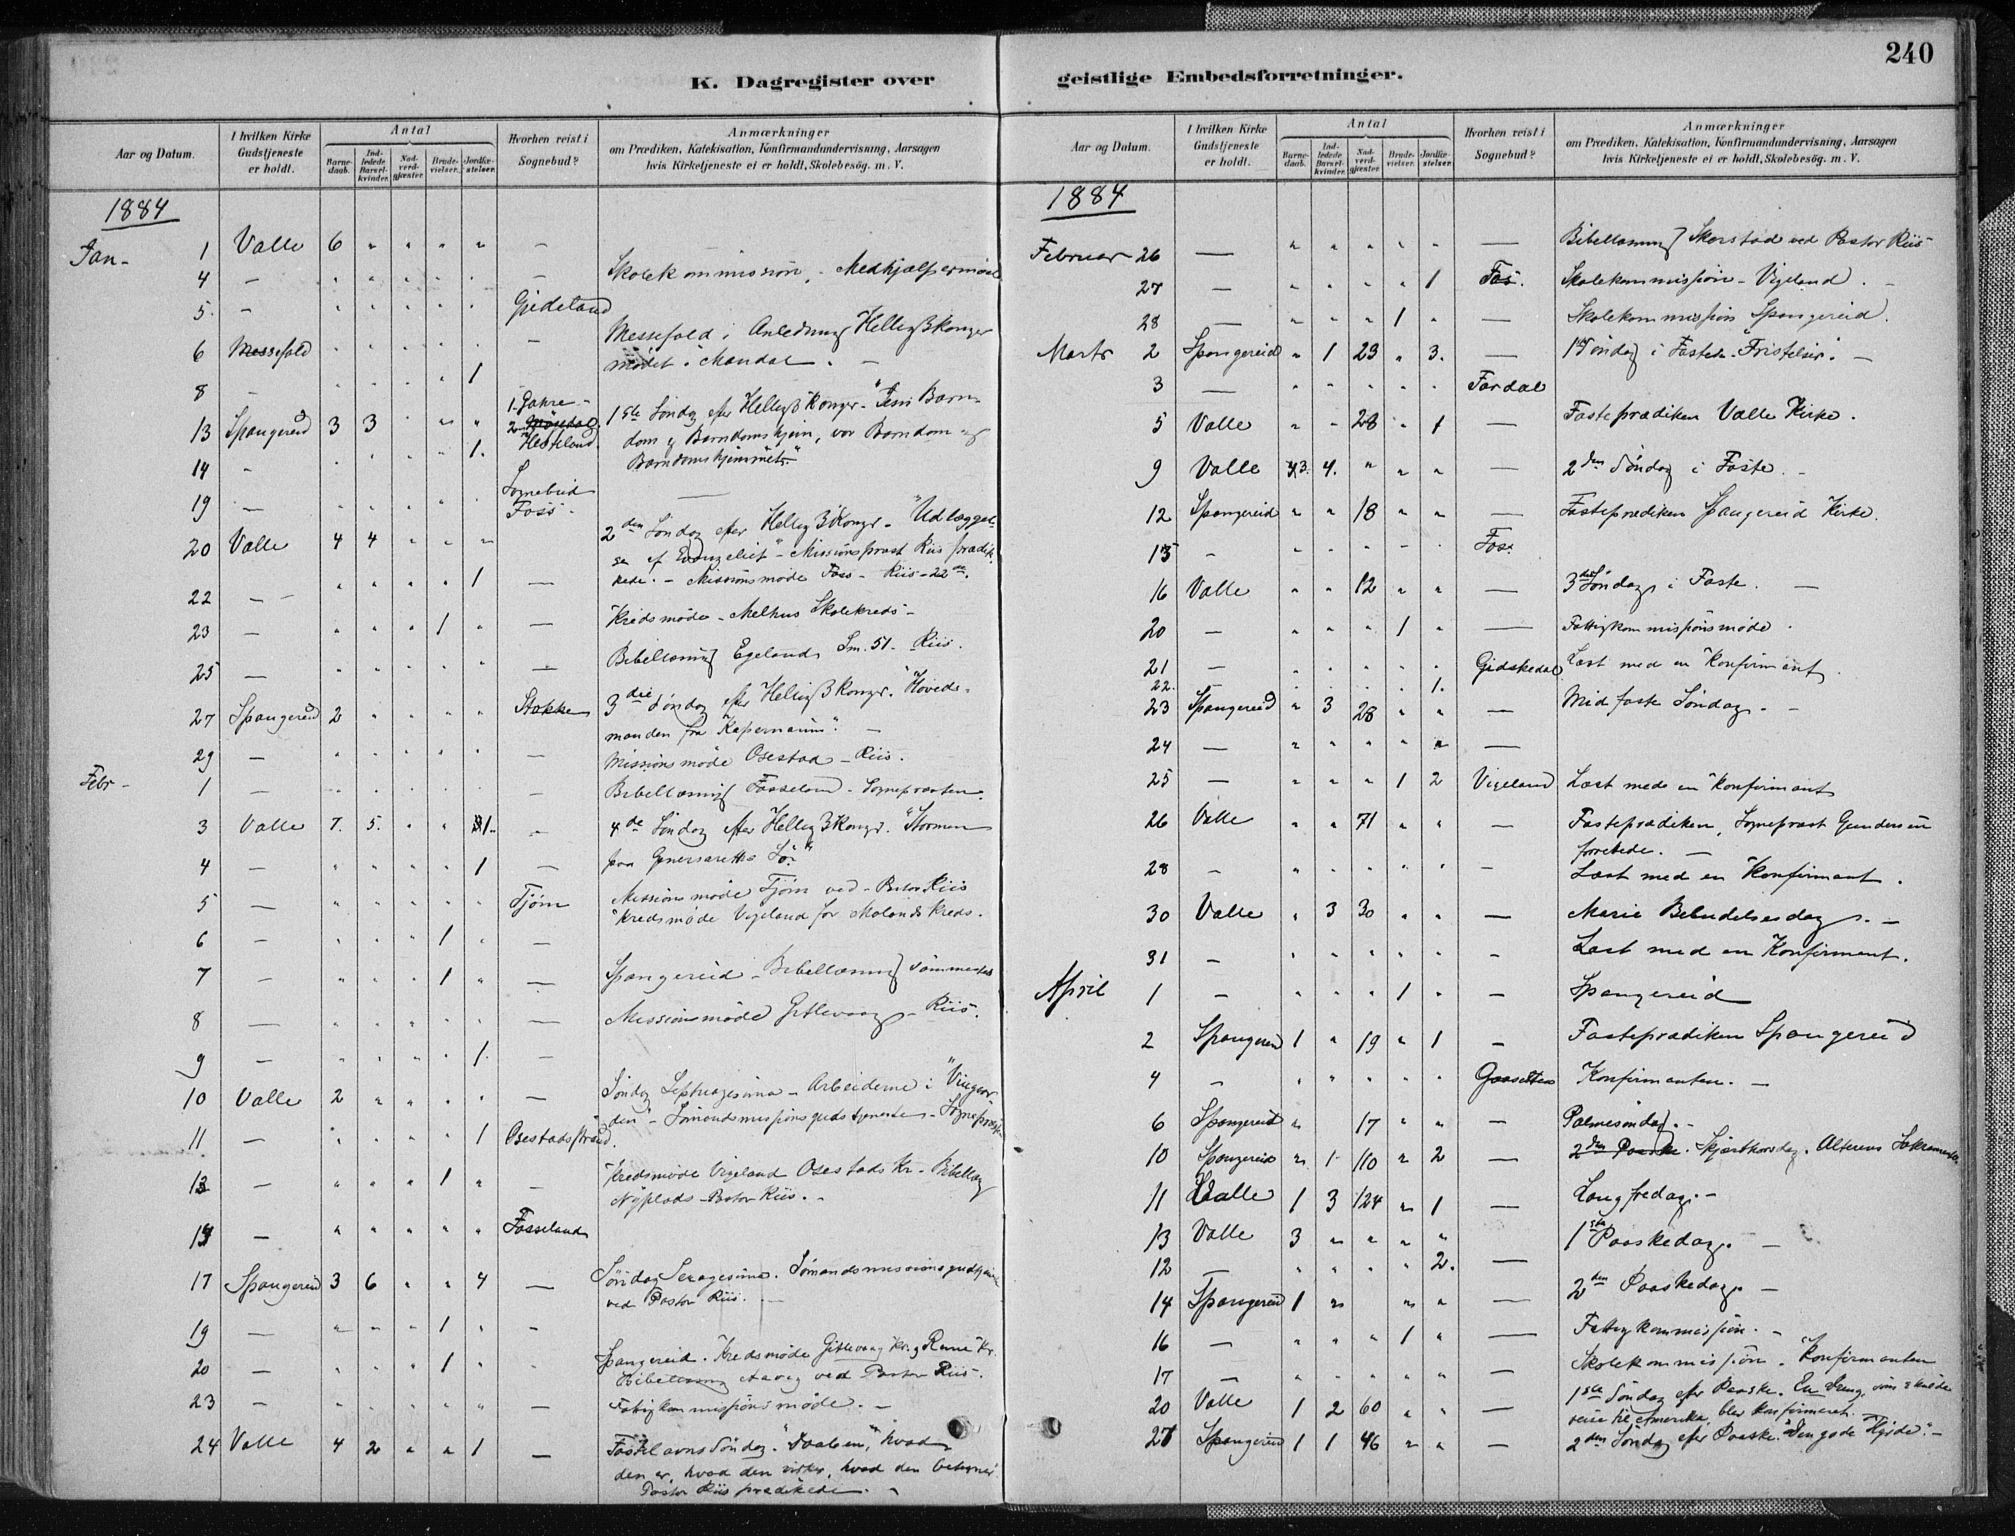 240
K. Dagregister over geistlige Embedsforretninger.
Aar og Datum.
I hvilken Kirke Gudstjeneste er holdt.
Antal
Barnedaab.
Indledede Barselkvinder.
Nadverdgjæster.
Brudevielser.
Jordfæstelser.
Hvorhen reist i Sognebud?
Anmærkninger
om Prædiken, Katekisation, Konfirmandundervisning, Aarsagen
hvis Kirketjeneste ei er holdt, Skolebesøg. m. V.
1884
Jan- 1 Valle 6 " " " " —
4 — " " " " " — Skolekommission, Medhjælpermøde
5. " " " " " " Gideland
6 Messefald " " " " " — Messefald i Anledning Hellig 3 Konger
mødet i Mandal. —
8 " " " " " 1
13 Spangereid 3 3 " " 1ste Søndag efter Hellig 3 Konger. "Jesu Barn-
Hesteland.
dom og Barndomshjem, vor Barndom og
14 — " " " " 1.
Barndomshjemmet."
19 — " " " " Sognebud
Foss.
20 Valle 4 4 " " " 2den Søndag efter Hellig 3 Kongr. "Udlæggel-
se af Evangeliet" - Missionsprest Riis prædik-
kede. - Missionsmøde Foss - Riis - 22de.
22 — " " " " 1 —
23 — " " " 1 " — Kredsmøde - Melhus Skolekreds -
25 — " " " " " — Bibellæsning Egeland Sm. 51. Riis.
27 Spangereid 2 " " " " Stokke 3die Søndag efter Hellig 3 Kongr. "Høveds-
manden fra Kapernaum". —
29 — " " " " " — Missionsmøde Osestad - Riis.
Febr- 1 — " " " " " — Bibellæsning Fasseland - Sognepræsten.
3 Valle 7. 5. " " 1. " 4de Søndag efter Hellig 3 Kongr. "Stormen
paa Genersarets Sø"
4 — " " " " 1 —
5 — " " " " " Tjøm Missionsmøde Tjøm ved - Pastor Riis
Kredsmøde Vigeland for Molands Kreds.
6 — " " " 1 " —
7 — " " " 1 " — Spangereid - Bibellæsning
8 — " " " " " — Missionsmøde Gitlevaag - Riis.
9 — " " " " 1. —
10 Valle 2 " " " " — Søndag Septuagesima - Arbeiderne i "Vingaar-
den" - Sømandsmissionsgudstjeneste - Sognepræsten
11 — " " " " 1 Osestadstrand.
13 — " " " 1 " — Kredsmøde Vigeland Osestads Kr. - Bibellæs
Nyplads - Pastor Riis. -
— " " " " " Fasseland
17 Spangereid 3 6 " " 4 — Søndag Sexagesima. Sømandsmissionsgudstjen
ved Pastor Riis.
19 — " " " 1 " -
20 — " " " 1 " Spangereid. Kredsmøde Gitlevaag Kr. og Rame Kr.
Bibellæsning Aavig ved Pastor Riis.
23 — " " " " " — Fattigkommissionsmøde. —
24 Valle 4 2 " " 1 — Fastelavns Søndag. "Daaben", hvad
den er, hvad den virker, hvad den betegner
Pastor Riis prædikede. -
Aar og Datum.
I hvilken Kirke Gudstjeneste er holdt.
Antal
Barnedaab.
Indledede Barselkvinder.
Nadverdgjæster.
Brudevielser.
Jordfæstelser.
Hvorhen reist i Sognebud?
Anmærkninger
om Prædiken, Katekisation, Konfirmandundervisning, Aarsagen
hvis Kirketjeneste ei er holdt, Skolebesøg. m. V.
1884
Februar 26 — " " " " " — Bibellæsning Skorstad ved Pastor Riis
27 — " " " " 1 Fos. Skolekommission - Vigeland. -
28 — " " " 1 " — Skolekommission Spangereid.
Marts 2 Spangereid " 1 23 " 3. — 1ste Søndag i Faste. "Fristelser". —
3 — " " " " " Fardal
5 Valle " " 28 " 1 — Fasteprædiken Valle Kirke.
9 Valle 3. 4. " " " — 2den Søndag i Faste. -
12 Spangereid " " 18 " " — Fasteprædiken Spangereid Kirke.
13 - " " " " " Fos.
16 Valle " " 12 " " — 3die Søndag i Faste. —
20 — " " " 1 " — Fattigkommissionsmøde.
21 — " " " " " Gidskedal Læst med en Konfirmant.
22. — " " " " 1.
23 Spangereid " 3 28 " " — Midfaste Søndag. -
24 — " " " " " —
25 — " " " 1 2 Vigeland Læst med en Konfirmant
26 Valle " " 71 " " — Fasteprædiken, Sogneprest Gundersen
forrettede. —
28 - " " " " " - Læst med en Konfirmant.
30 Valle " 3 30 " " — Marie Bebudelsesdag. —
31 - " " " " " - Læst med en Konfirmant.
April 1 - " " " 1 " - Spangereid
2 Spangereid 1 " 19 " 1 - Fasteprædiken Spangereid
4 - " " " " " Konfirmanten. —
6 Spangereid " 17 " " - Palmesøndag. -
10 Spangereid " 1 110 " 2 — 2den Paaske. Skjærthorsdag. Alterens Sakramente
11 Valle 1 3 124 " 1 — Langfredag. -
13 Valle 3 " " " " 1ste Paaskedag. —
12 — " " " " 2. —
14 Spangereid 1 " " " — 2den Paaskedag. —
16 — " " " 1 " — Fattigkommission. -
17 — " " " " " — Skolekommission. Konfirmanten
20 Valle 1 2 60 " " — 1ste Søndag efter Paaske. En Dreng, som skulde
reise til Amerika, blev konfirmeret. —
27 Spangereid 1 1 46 " " - 2den Søndag efter Paaske. "Den gode Hyrde". -